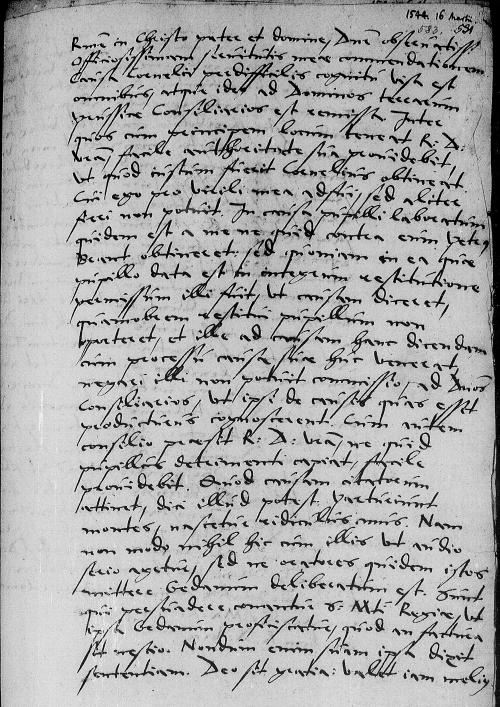 1544. 16 Martii
531
Rme in Christo pater et domine, Dne observatiss
Officiosissimam servitutis mee commendationem
Causa Cornelii perdifficilis cognitu visa est
omnibus, atque ideo ad Dominos terrarum
prussie Consiliarios est remissa. Inter
quos cum principem locum teneat R. D.
vra, facile authoritate sua providebit,
Ut quod iustum fuerit Cornelius obtineat.
Cui ego pro virili mea adfui, sed aliter
fieri non potuit. In causa pupilli laboratum
quidem est a me ne quid contra eum
obtineret: sed quoniam in ea que
pupillo data est in integrum restitutione
permissum illi fuit, ut causam diceret,
quamobrem restitui pupillum non
oporteret, et ille ad causam hanc dicendam
cum processu cause sue huc venerat,
negari illi non potuit commissio, ad Dnos
Consiliarios, ut ipsi de causis quas esset
producturus cognoscerent. Cum autem
consilio praesit R. D. vra, ne quid
pupillus detrimenti capiat, facile
providebit. Quod causam
attinet, dici illud potest. Parturiunt
montes, nascetur ridiculus mus. Nam
non modo nihil hic cum illis ut audio
serio agetur, sed ne oratores quidem istos
mittere Gedanum deliberatum est. Sunt
qui persuadere conantur S. Mti Regie, ut
ipsa Gedanum proficiscatur, quod an factura
sit nescio. Nondum enim suam ipsa dixit
sententiam. Deo sit gratia: valet iam